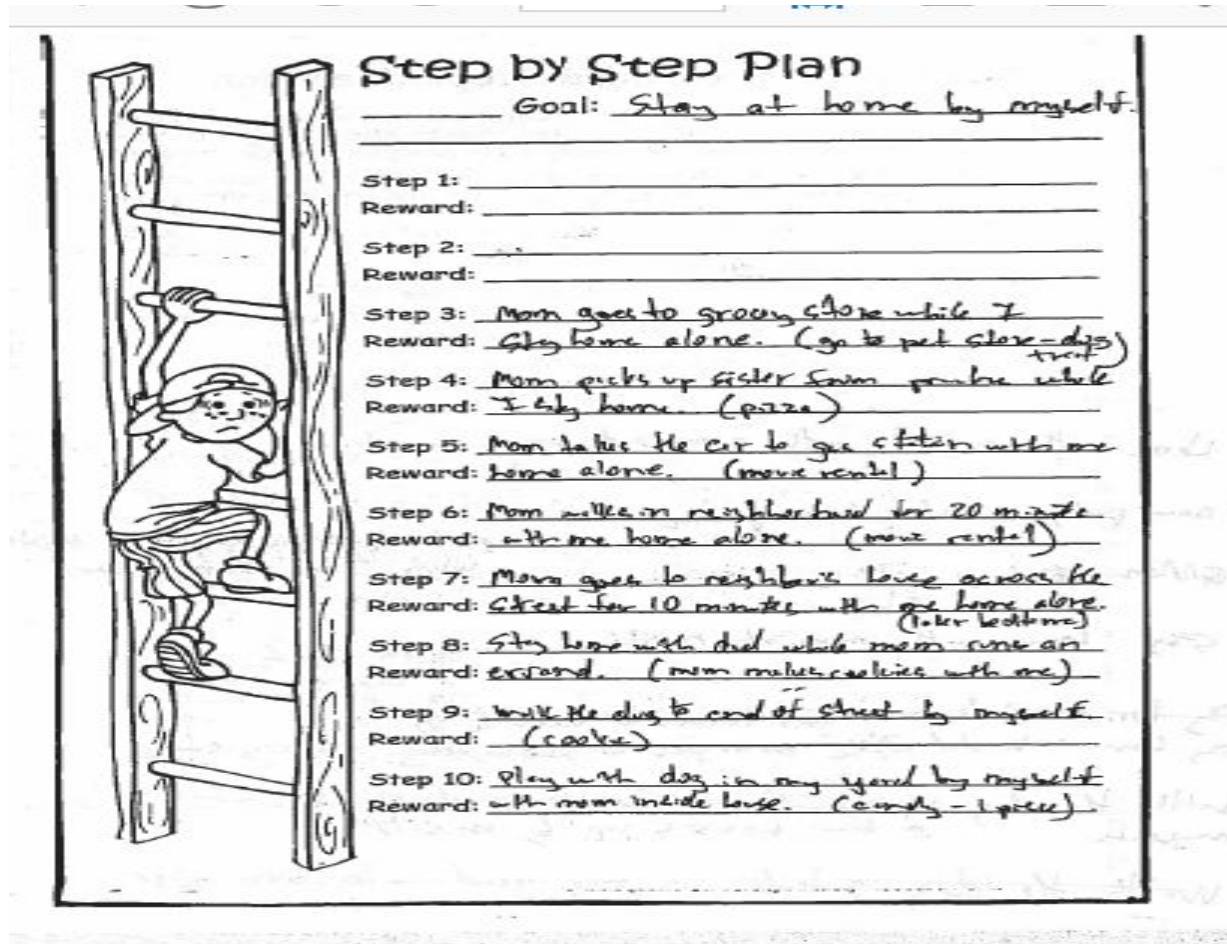 Step by Step Plan
Goal: Stay at home by myself.
Step 1:
Reward:
Step 2:
Reward:
Step 3: Mom goes to grocery store while I
Reward: Stay home alone. (go to pet store-dog
treat)
Step 4: Mom picks up sister from practice while
Reward: I stay home. (pizza)
Step 5: Mom takes the car to gas station with me
Reward: home alone. (movie rental)
Step 6: Mom walks in neighborhood for 20 minute
Reward: with me home alone. (movie rental)
Step 7: Mom goes to neighbor's house across the
Reward: Street for 10 minutes with me home alone.
(later bedtime)
Step 8: Stay home with dad while mom runs an
Reward: errand. (mom makes cookies with me)
Step 9: Walk the dog to end of street by myself.
Reward: (cookie)
Step 10: Play with dog in my yard by myself
Reward: with mom inside house. (candy - 1 piece)